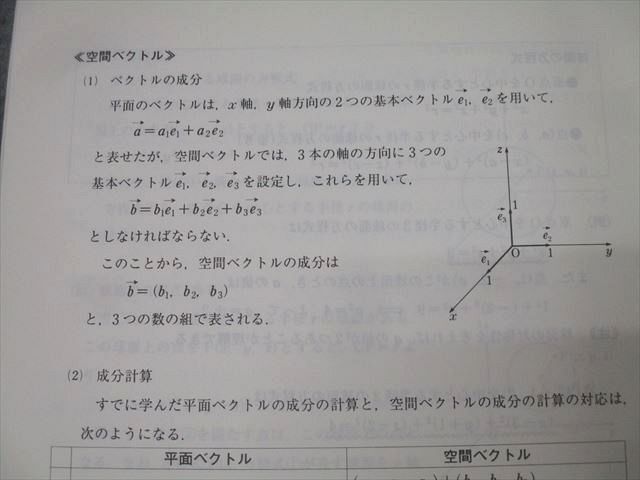 ≪空間ベクトル≫
(1) ベクトルの成分
平面のベクトルは，x 軸，y 軸方向の2つの基本ベクトル e₁⃗，e₂⃗ を用いて，
a⃗=a₁e₁⃗+a₂e₂⃗
と表せたが，空間ベクトルでは，3本の軸の方向に3つの
基本ベクトル e₁⃗，e₂⃗，e₃⃗ を設定し，これらを用いて，
b⃗=b₁e₁⃗+b₂e₂⃗+b₃e₃⃗
としなければならない．
このことから，空間ベクトルの成分は
b⃗=(b₁, b₂, b₃)
と，3つの数の組で表される．
z
1
e₃⃗
e₂⃗
e₁⃗
O
1
y
1
x
(2) 成分計算
すでに学んだ平面ベクトルの成分の計算と，空間ベクトルの成分の計算の対応は，
次のようになる．
平面ベクトル 空間ベクトル